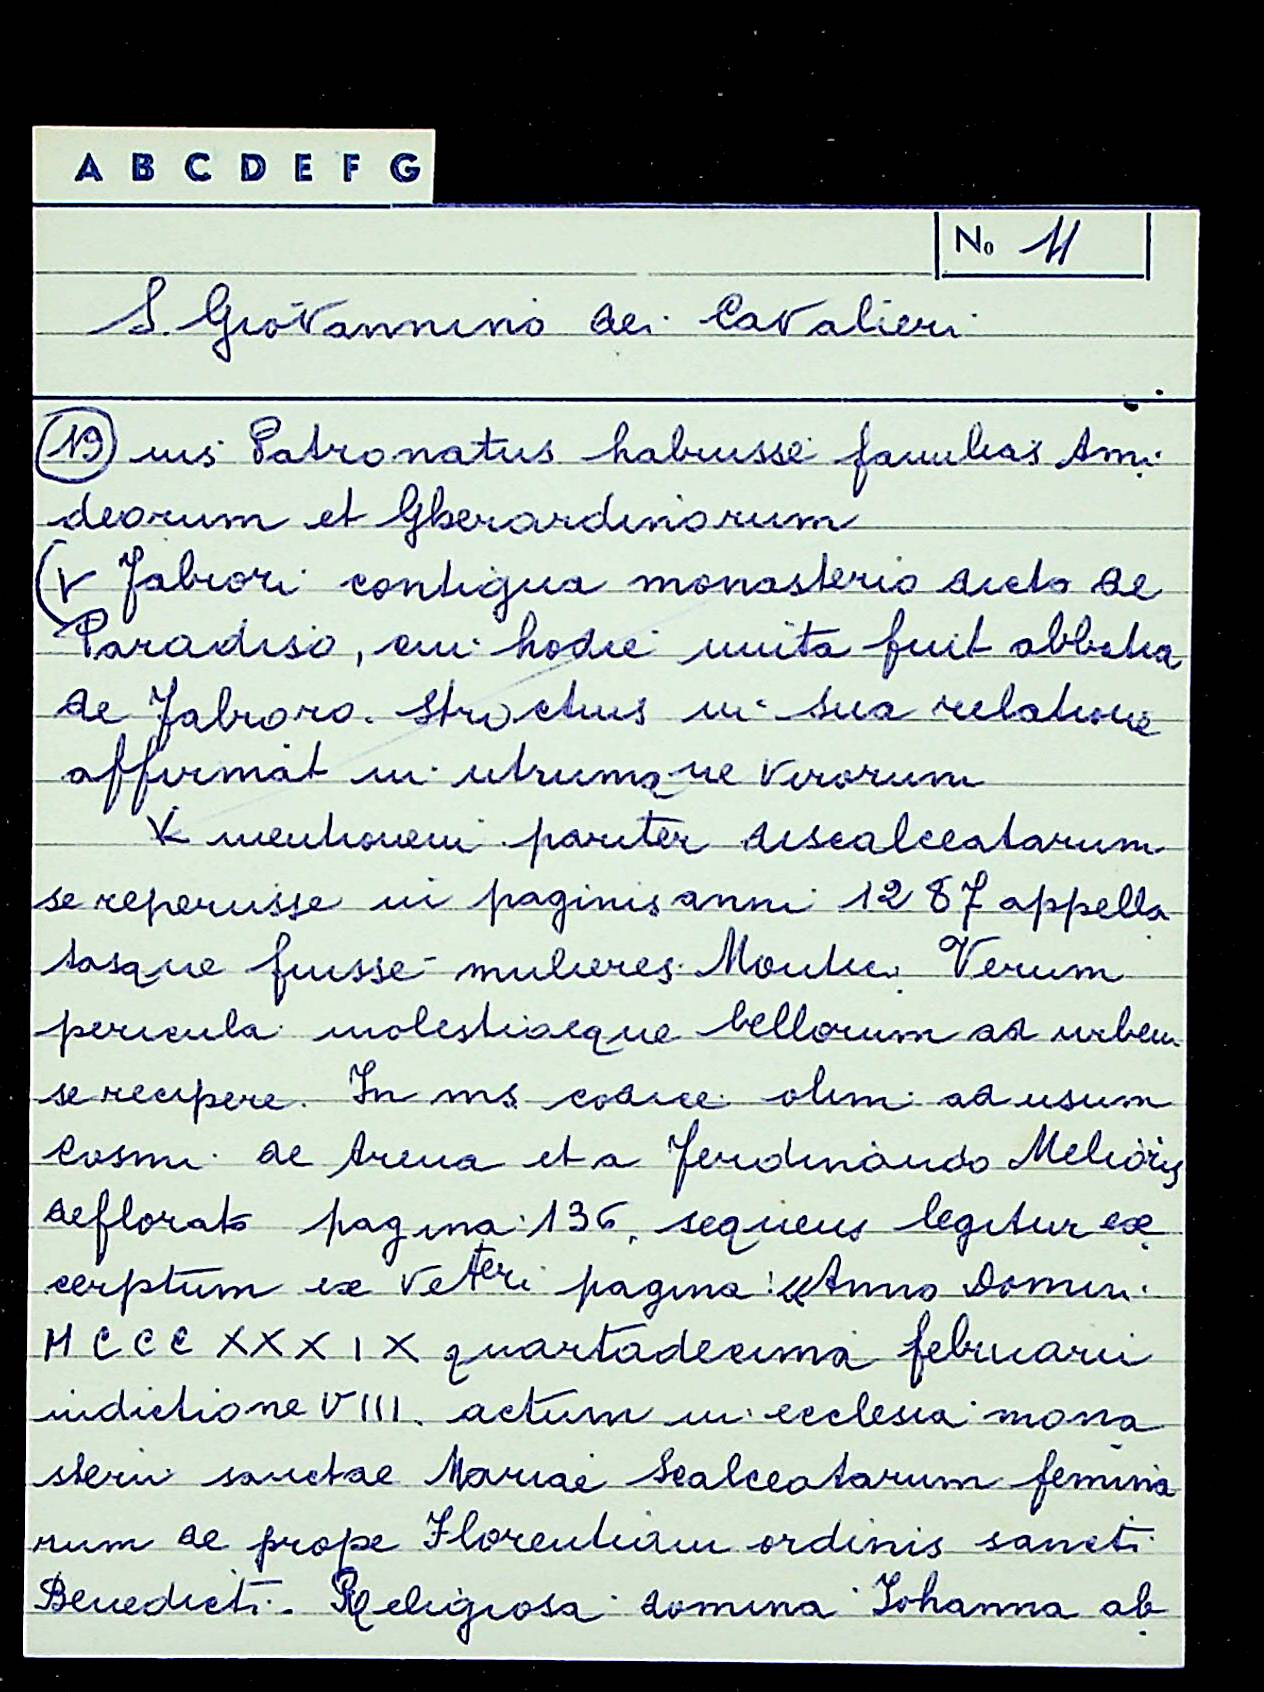 A B C D E F G
No 11
S. Giovannino dei Cavalieri
19 ius Patronatus habuisse familias Ami
deorum et Gherardinorum
(V Fabrori contigua monasterio dicto de
Paradiso, cui hodie unita fuit abbatia
de Fabroro. Stroctius in sua relatione
affirmat in utrumque virorum
V mentionem pariter discalceatarum
se reperisse in paginis anni 1287 appella
tasque fuisse mulieres Montic. Verum
pericula molestiaeque bellorum ad urbem
se recipere. In ms codice olim ad usum
Cosmi de Arena et a Ferdinando Melioris
deflorato pagina 136, sequens legitur ex
cerptum ex veteri pagina: «Anno Domini
MCCCXXXIX quartadecima februarii
indictione VIII. actum in ecclesia mona
sterii sanctae Mariae Scalceatarum femina
rum de prope Florentiam ordinis sancti
Benedicti. Religiosa domina Iohanna ab